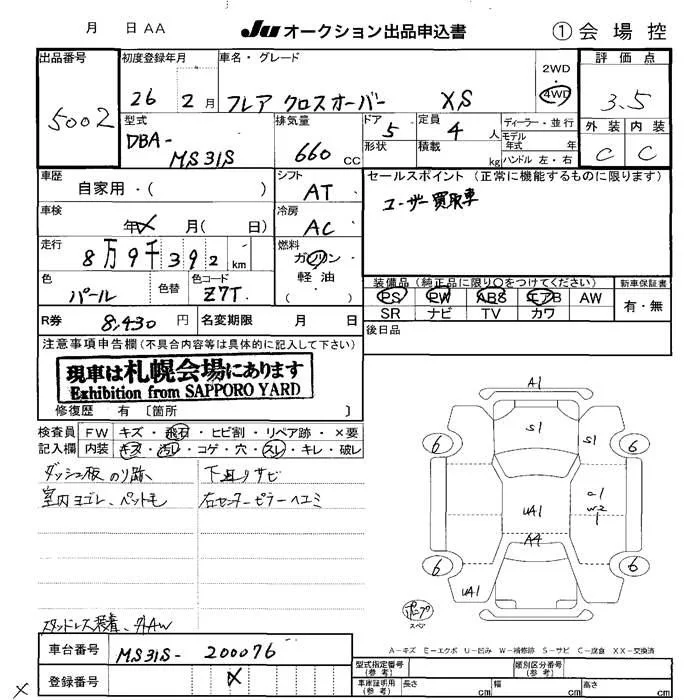 月 日 AA Ju オークション出品申込書 ① 会場控
出品番号 初度登録年月 車名・グレード 2WD 評価点
5002 26 2月 フレア クロスオーバー XS 4WD 3.5
型式 排気量 ドア 定員 ディーラー・並行 外装 内装
DBA- 5 4人 モデル年式 年 C C
MS31S 660 CC 形状 積載 kg ハンドル 左・右
車歴 シフト セールスポイント (正常に機能するものに限ります)
自家用・( ) AT ユーザー買取車
車検 冷房
年 月( 日) AC
走行 燃料
8万9千392 km ガソリン
色 色替 色コード 軽油 装備品 (純正品に限り〇をつけてください) 新車保証書
パール Z7T ( ) PS PW ABS エアB AW 有・無
SR ナビ TV カワ
R券 8,430円 名変期限 月 日 後日品
注意事項申告欄(不具合内容等は具体的に記入して下さい)
現車は札幌会場にあります
Exhibition from SAPPORO YARD
修復歴 有 〔箇所 〕
検査員 FW キズ・飛石・ヒビ割・リペア跡・×要
記入欄 内装 キズ・汚レ・コゲ・穴・スレ・キレ・破レ
ダッシュ板 のり跡 下廻りサビ
室内ヨゴレ、ペットモ 右センターピラーヘコミ
スタッドレス装着、外AW
A1
S1 S1
6 6
UA1 a1
W2
1
A4
6 6
UA1
スペア
A-キズ E-エクボ U-凹み W-補修跡 S-サビ C-腐食 XX-交換済
車台番号 MS31S- 200076 型式指定番号(参考) 類別区分番号(参考)
登録番号 × 車庫証明用(参考) 長さ cm 幅 cm 高さ cm
×